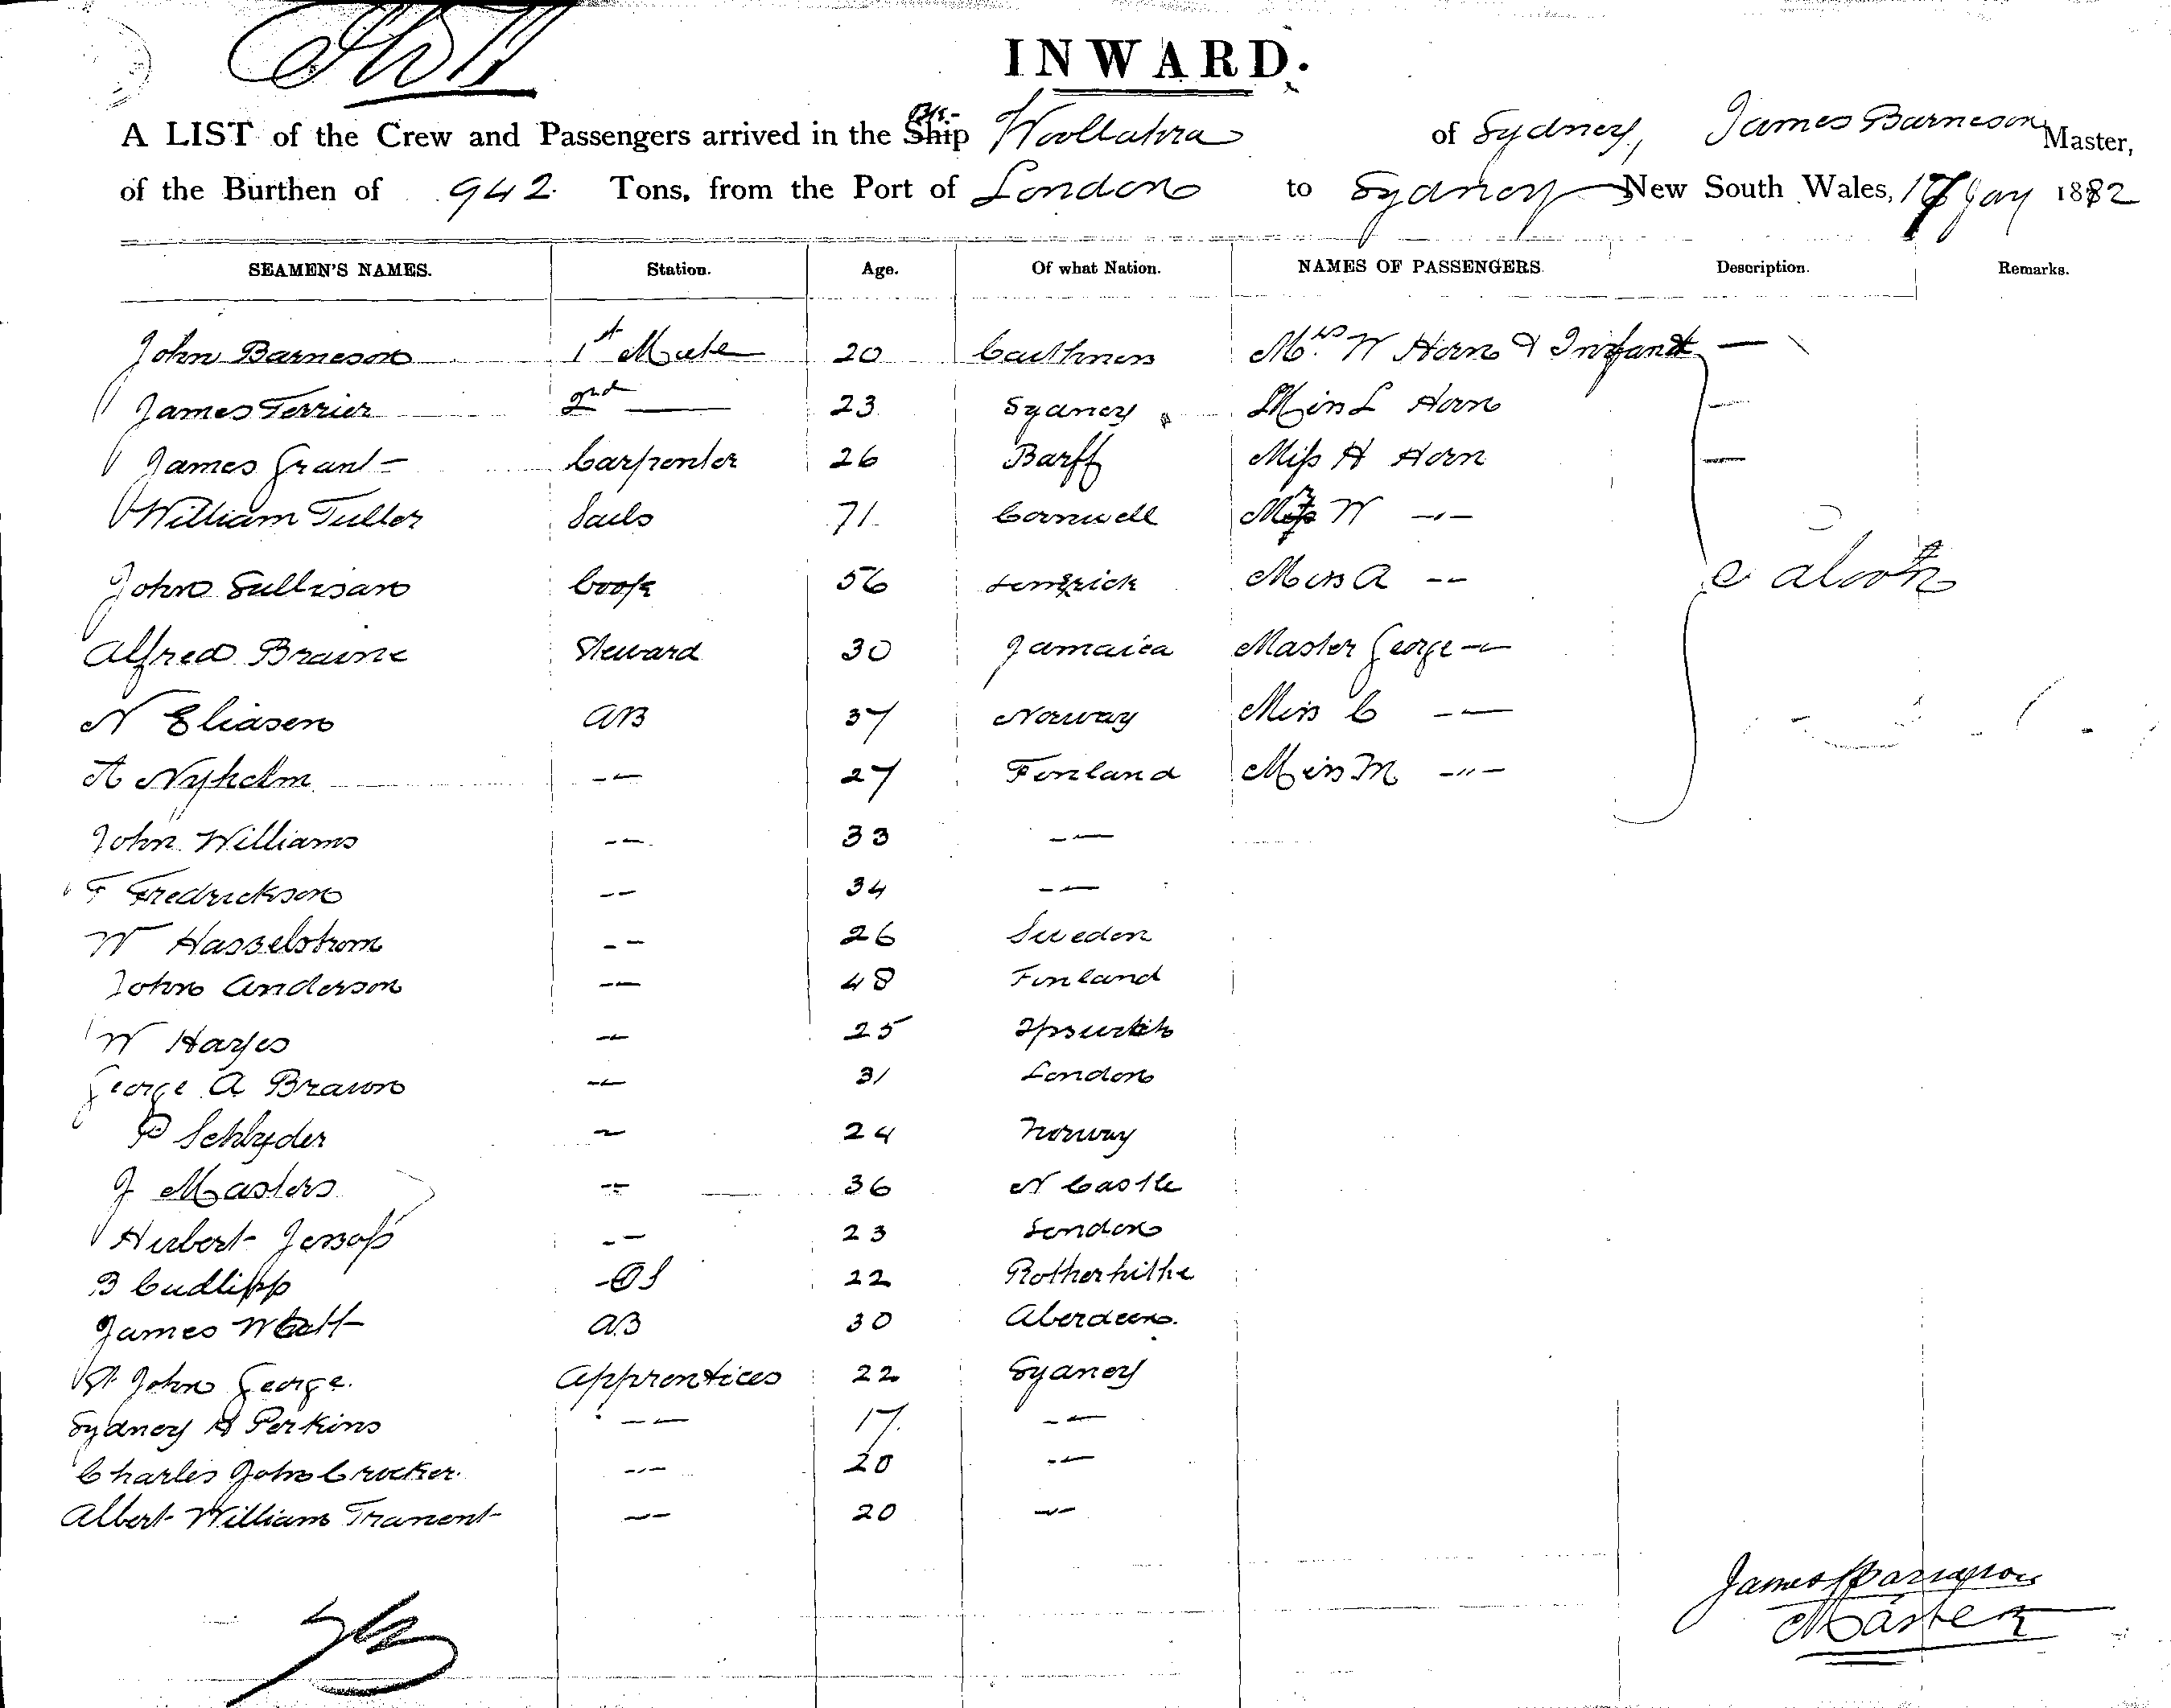 INWARD.
A LIST of the Crew and Passengers arrived in the Ship Woollahra of Sydney, James Barneson Master,
of the Burthen of 942 Tons, from the Port of London to Sydney New South Wales, 17 Jany 1882
SEAMEN'S NAMES. Station. Age. Of what Nation. NAMES OF PASSENGERS. Description. Remarks.
John Barneson 1st Mate 20 Caithness Mrs W Horn & Infant —
James Ferrier 2nd — 23 Sydney Miss L Horn —
James Grant Carpenter 26 Banff Miss H Horn —
William Tuller Sails 71 Cornwell Mr W -"-
John Sullivan Cook 56 Limerick Miss A -- Saloon
Alfred Braine Steward 30 Jamaica Master George --
N Eliasen AB 37 Norway Miss C --
A Nyholm -- 27 Finland Miss M -"-
John Williams -- 33 --
F Fredrickson -- 34 --
W Hasselstrom -- 26 Sweden
John Anderson -- 48 Finland
W Hayes -- 25 Ipswich
George A Brawn -- 31 London
P Schlyder -- 24 Norway
J Masters -- 36 N Castle
Herbert Jessop -- 23 London
B Cudlipp OS 22 Rotherhithe
James Watt AB 30 Aberdeen.
St John George. Apprentices 22 Sydney
Sydney H Perkins -- 17. --
Charles John Crocker. -- 20 --
Albert William Tranent -- 20 --
James Barneson
Master